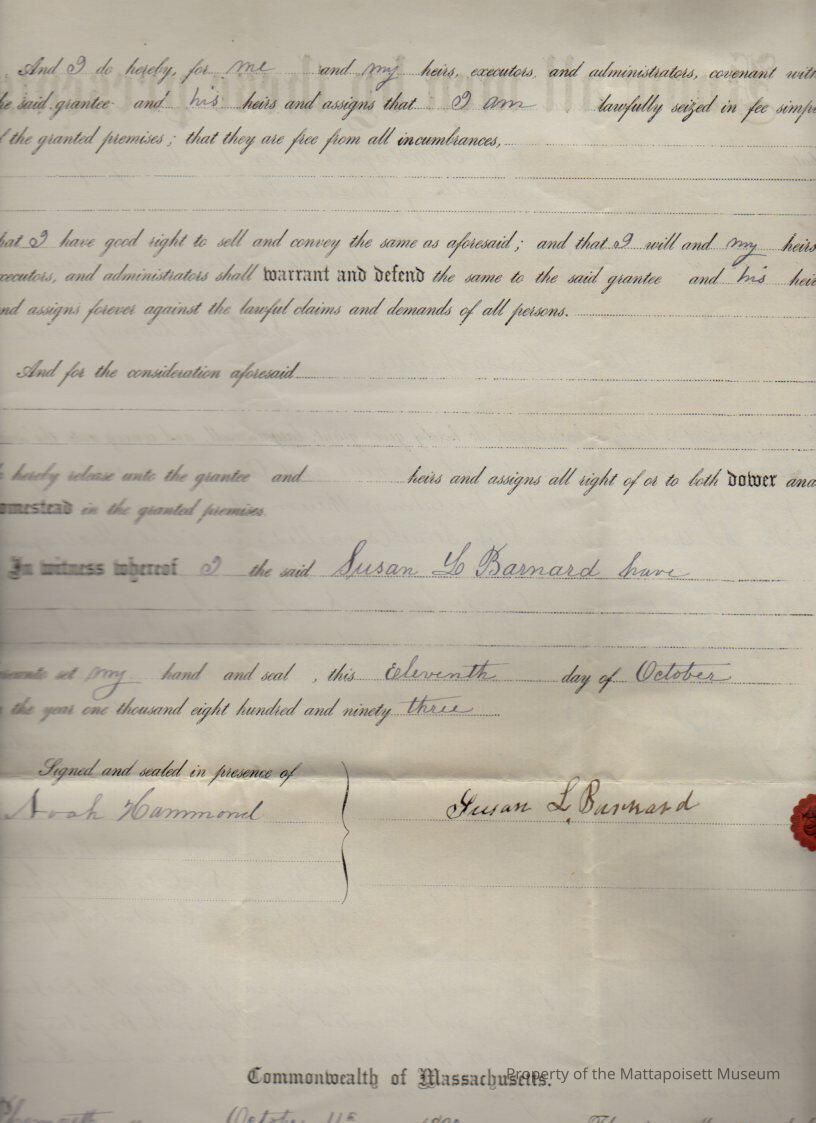 And I do hereby, for me and my heirs, executors, and administrators, covenant with
he said grantee and his heirs and assigns that I am lawfully seized in fee simple
f the granted premises; that they are free from all incumbrances,
hat I have good right to sell and convey the same as aforesaid; and that I will and my heirs
xecutors, and administrators shall warrant and defend the same to the said grantee and his heirs
nd assigns forever against the lawful claims and demands of all persons.
And for the consideration aforesaid
o hereby release unto the grantee and heirs and assigns all right of or to both dower and
omestead in the granted premises.
In witness whereof I the said Susan L Barnard have
reunto set my hand and seal, this Eleventh day of October
n the year one thousand eight hundred and ninety three
Signed and sealed in presence of
Noah Hammond
Susan L. Barnard
Commonwealth of Massachusetts.
Property of the Mattapoisett Museum
October 11th